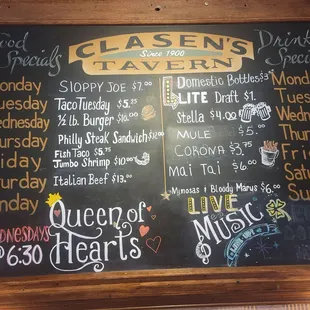 Food Specials
CLASEN'S
Since 1900
TAVERN
Drink Specials
Monday Sloppy Joe $7.00
Tuesday Taco Tuesday $5.75
Wednesday ½ lb. Burger $10.00
Thursday Philly Steak Sandwich $12.00
Friday Fish Taco $5.75
Jumbo Shrimp $10.00
Saturday Italian Beef $13.00
Sunday
Domestic Bottles $3 Monday
LITE Draft $1. Tuesday
Stella $4.00 Wednesday
MULE $5. Thursday
CORONA $3.75 Friday
Mai Tai $6 Saturday
Mimosas & Bloody Marys $6.00 Sunday
WEDNESDAYS
@ 6:30
Queen of
Hearts
LIVE
MUSIC